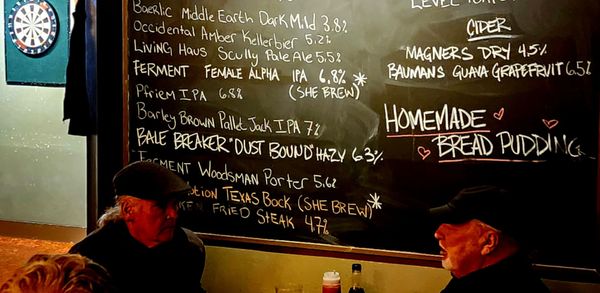 Baerlic Middle Earth Dark Mild 3.8%
Occidental Amber Kellerbier 5.2%
Living Haus Scully Pale Ale 5.5%
Ferment Female Alpha IPA 6.8% *
(She Brew)
Pfriem IPA 6.8%
Barley Brown Pallet Jack IPA 7%
Bale Breaker "Dust Bound" Hazy 6.3%
Ferment Woodsman Porter 5.6%
Texas Bock (She Brew) *
Fried Steak 4.7%
Cider
Magners Dry 4.5%
Baumans Guava Grapefruit 6.5%
Homemade
Bread Pudding